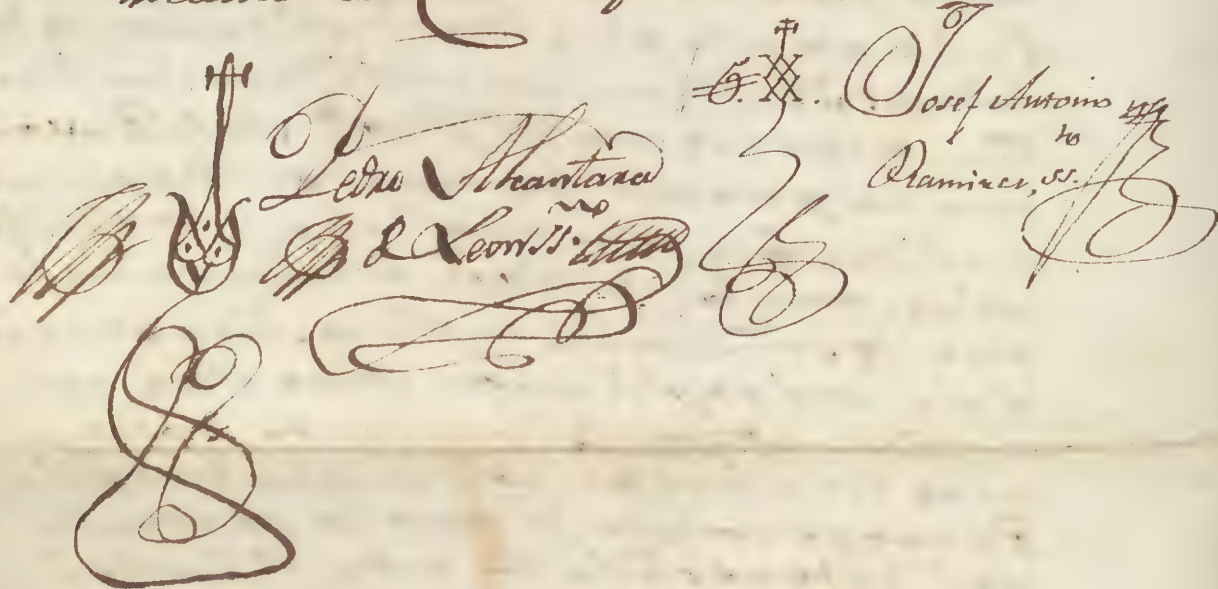 Pedro Alcantara
de Leon ss.no
Josef Antonio
Ramirez, ss.no